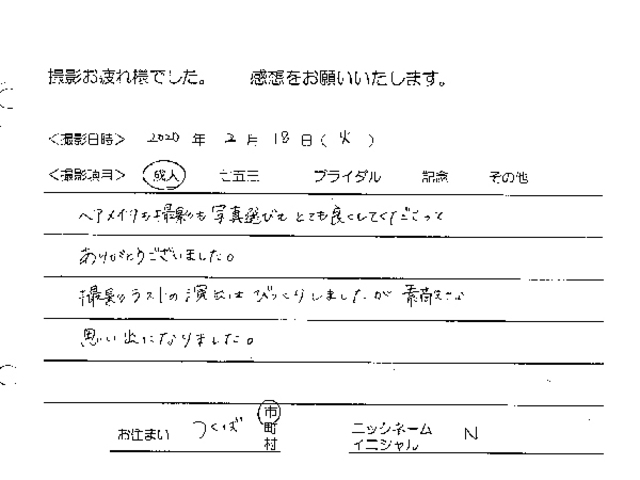 撮影お疲れ様でした。 感想をお願いいたします。
<撮影日時> 2020 年 2 月 18 日 ( 火 )
<撮影項目> 成人 七五三 ブライダル 記念 その他
ヘアメイクも撮影も写真選びもとても良くしてくださって
ありがとうございました。
撮影ラストの演出はびっくりしましたが素敵な
思い出になりました。
お住まい つくば 市 町 村
ニッシネーム イニシャル N